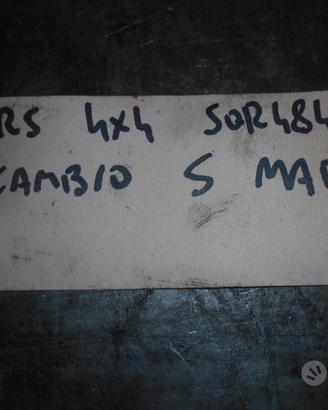 RS 4x4 SOR484
CAMBIO 5 MAR